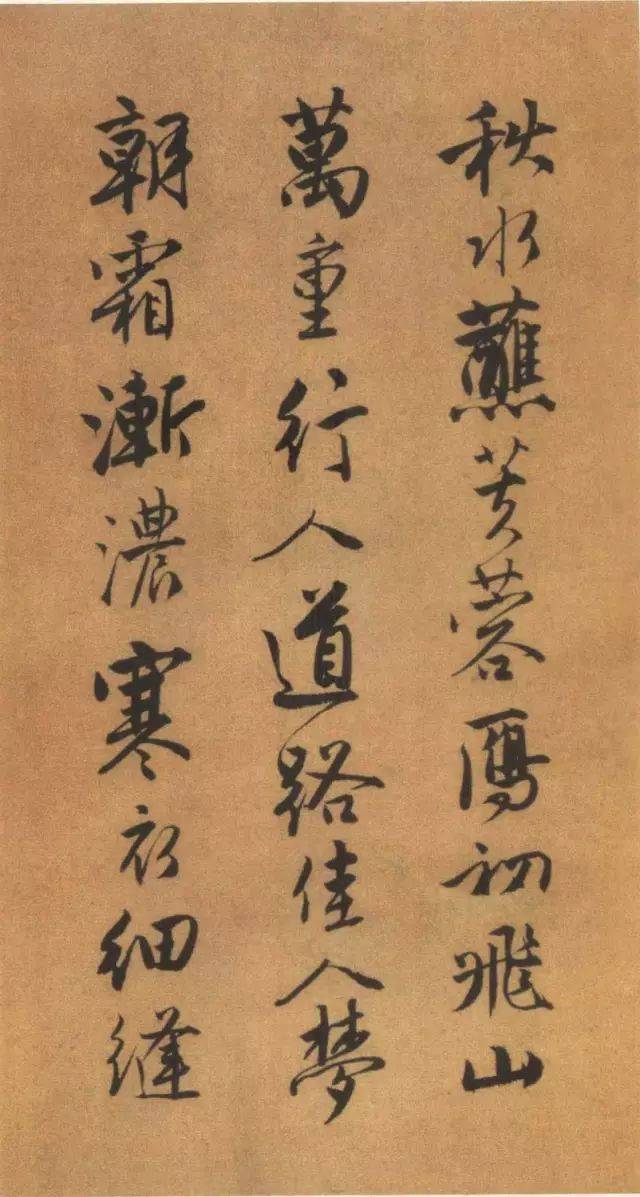 秋水蘸芙蓉鴈初飛山
萬重行人道路佳人夢
朝霜漸濃寒衣細縫